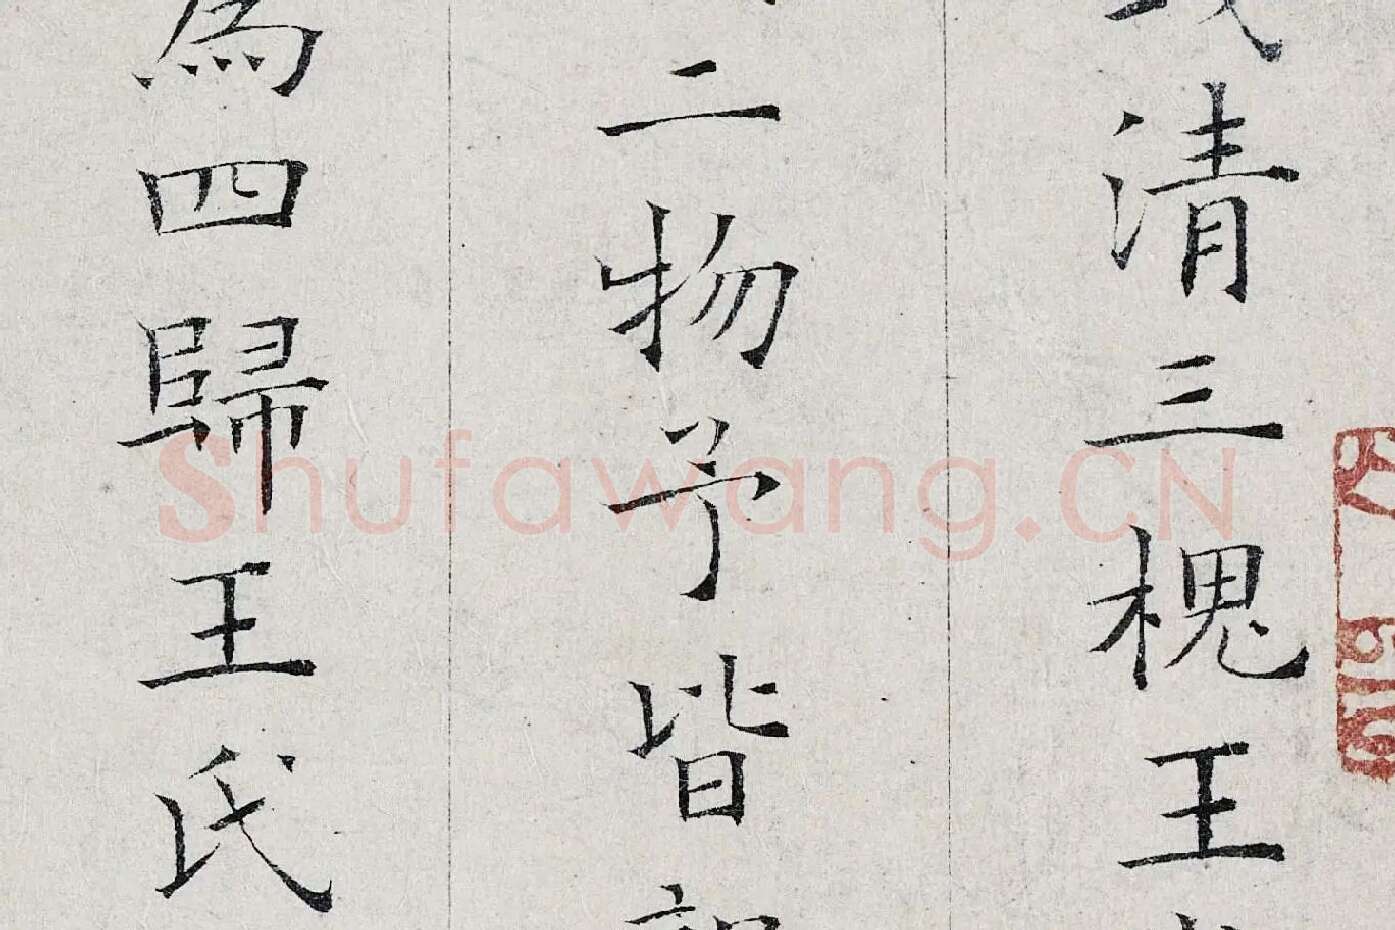 清三槐王
二物予皆
為四歸王氏
Shufawang.CN